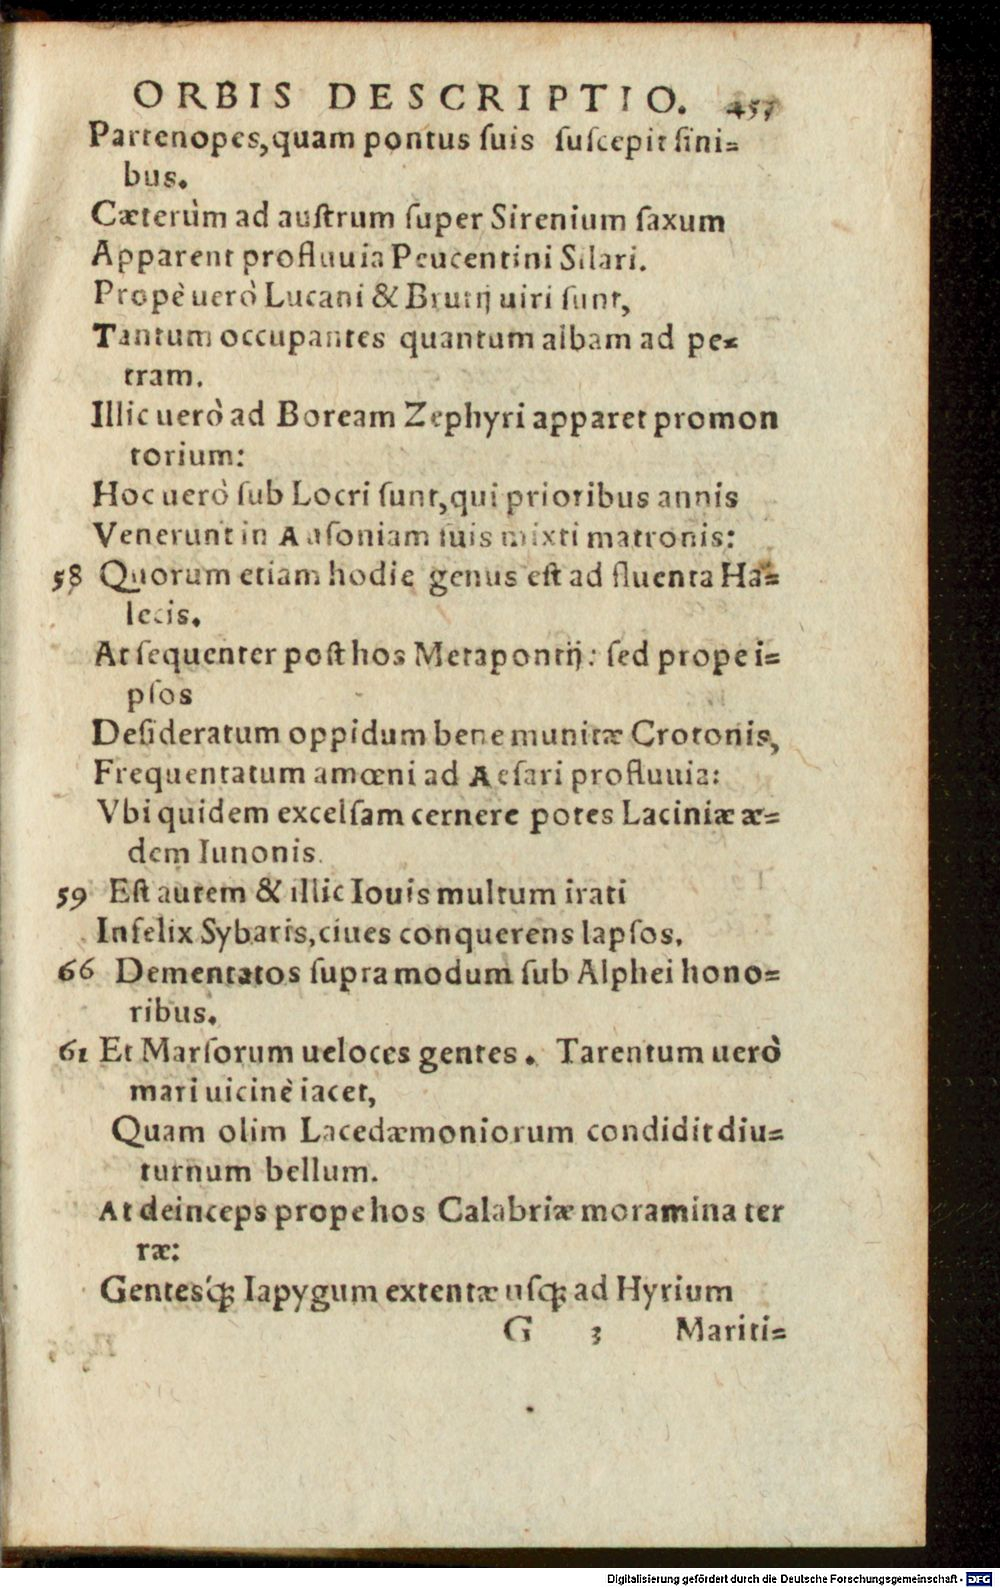 ORBIS DESCRIPTIO. 457
Partenopes,quam pontus ſuis ſuſcepit ſini=
bus.
Cæterùm ad auſtrum ſuper Sirenium ſaxum
Apparent profluuia Peucentini Silari.
Propè uerò Lucani & Brutij uiri ſunt,
Tantum occupantes quantum albam ad pe=
tram.
Illic uerò ad Boream Zephyri apparet promon
torium:
Hoc uerò ſub Locri ſunt,qui prioribus annis
Venerunt in Auſoniam ſuis mixti matronis:
58 Quorum etiam hodie genus eſt ad fluenta Ha=
lecis.
At ſequenter poſt hos Metapontij: ſed prope i=
pſos
Deſideratum oppidum bene munitæ Crotonis,
Frequentatum amœni ad Aeſari profluuia:
Vbi quidem excelſam cernere potes Laciniæ æ=
dem Iunonis.
59 Eſt autem & illic Iouis multum irati
Infelix Sybaris,ciues conquerens lapſos.
66 Dementatos ſupra modum ſub Alphei hono=
ribus.
61 Et Marſorum ueloces gentes. Tarentum uerò
mari uicinè iacet,
Quam olim Lacedæmoniorum condidit diu=
turnum bellum.
At deinceps prope hos Calabriæ moramina ter
ræ:
Gentesq́; Iapygum extentæ uſq; ad Hyrium
G 3 Mariti=
Digitalisierung gefördert durch die Deutsche Forschungsgemeinschaft - DFG